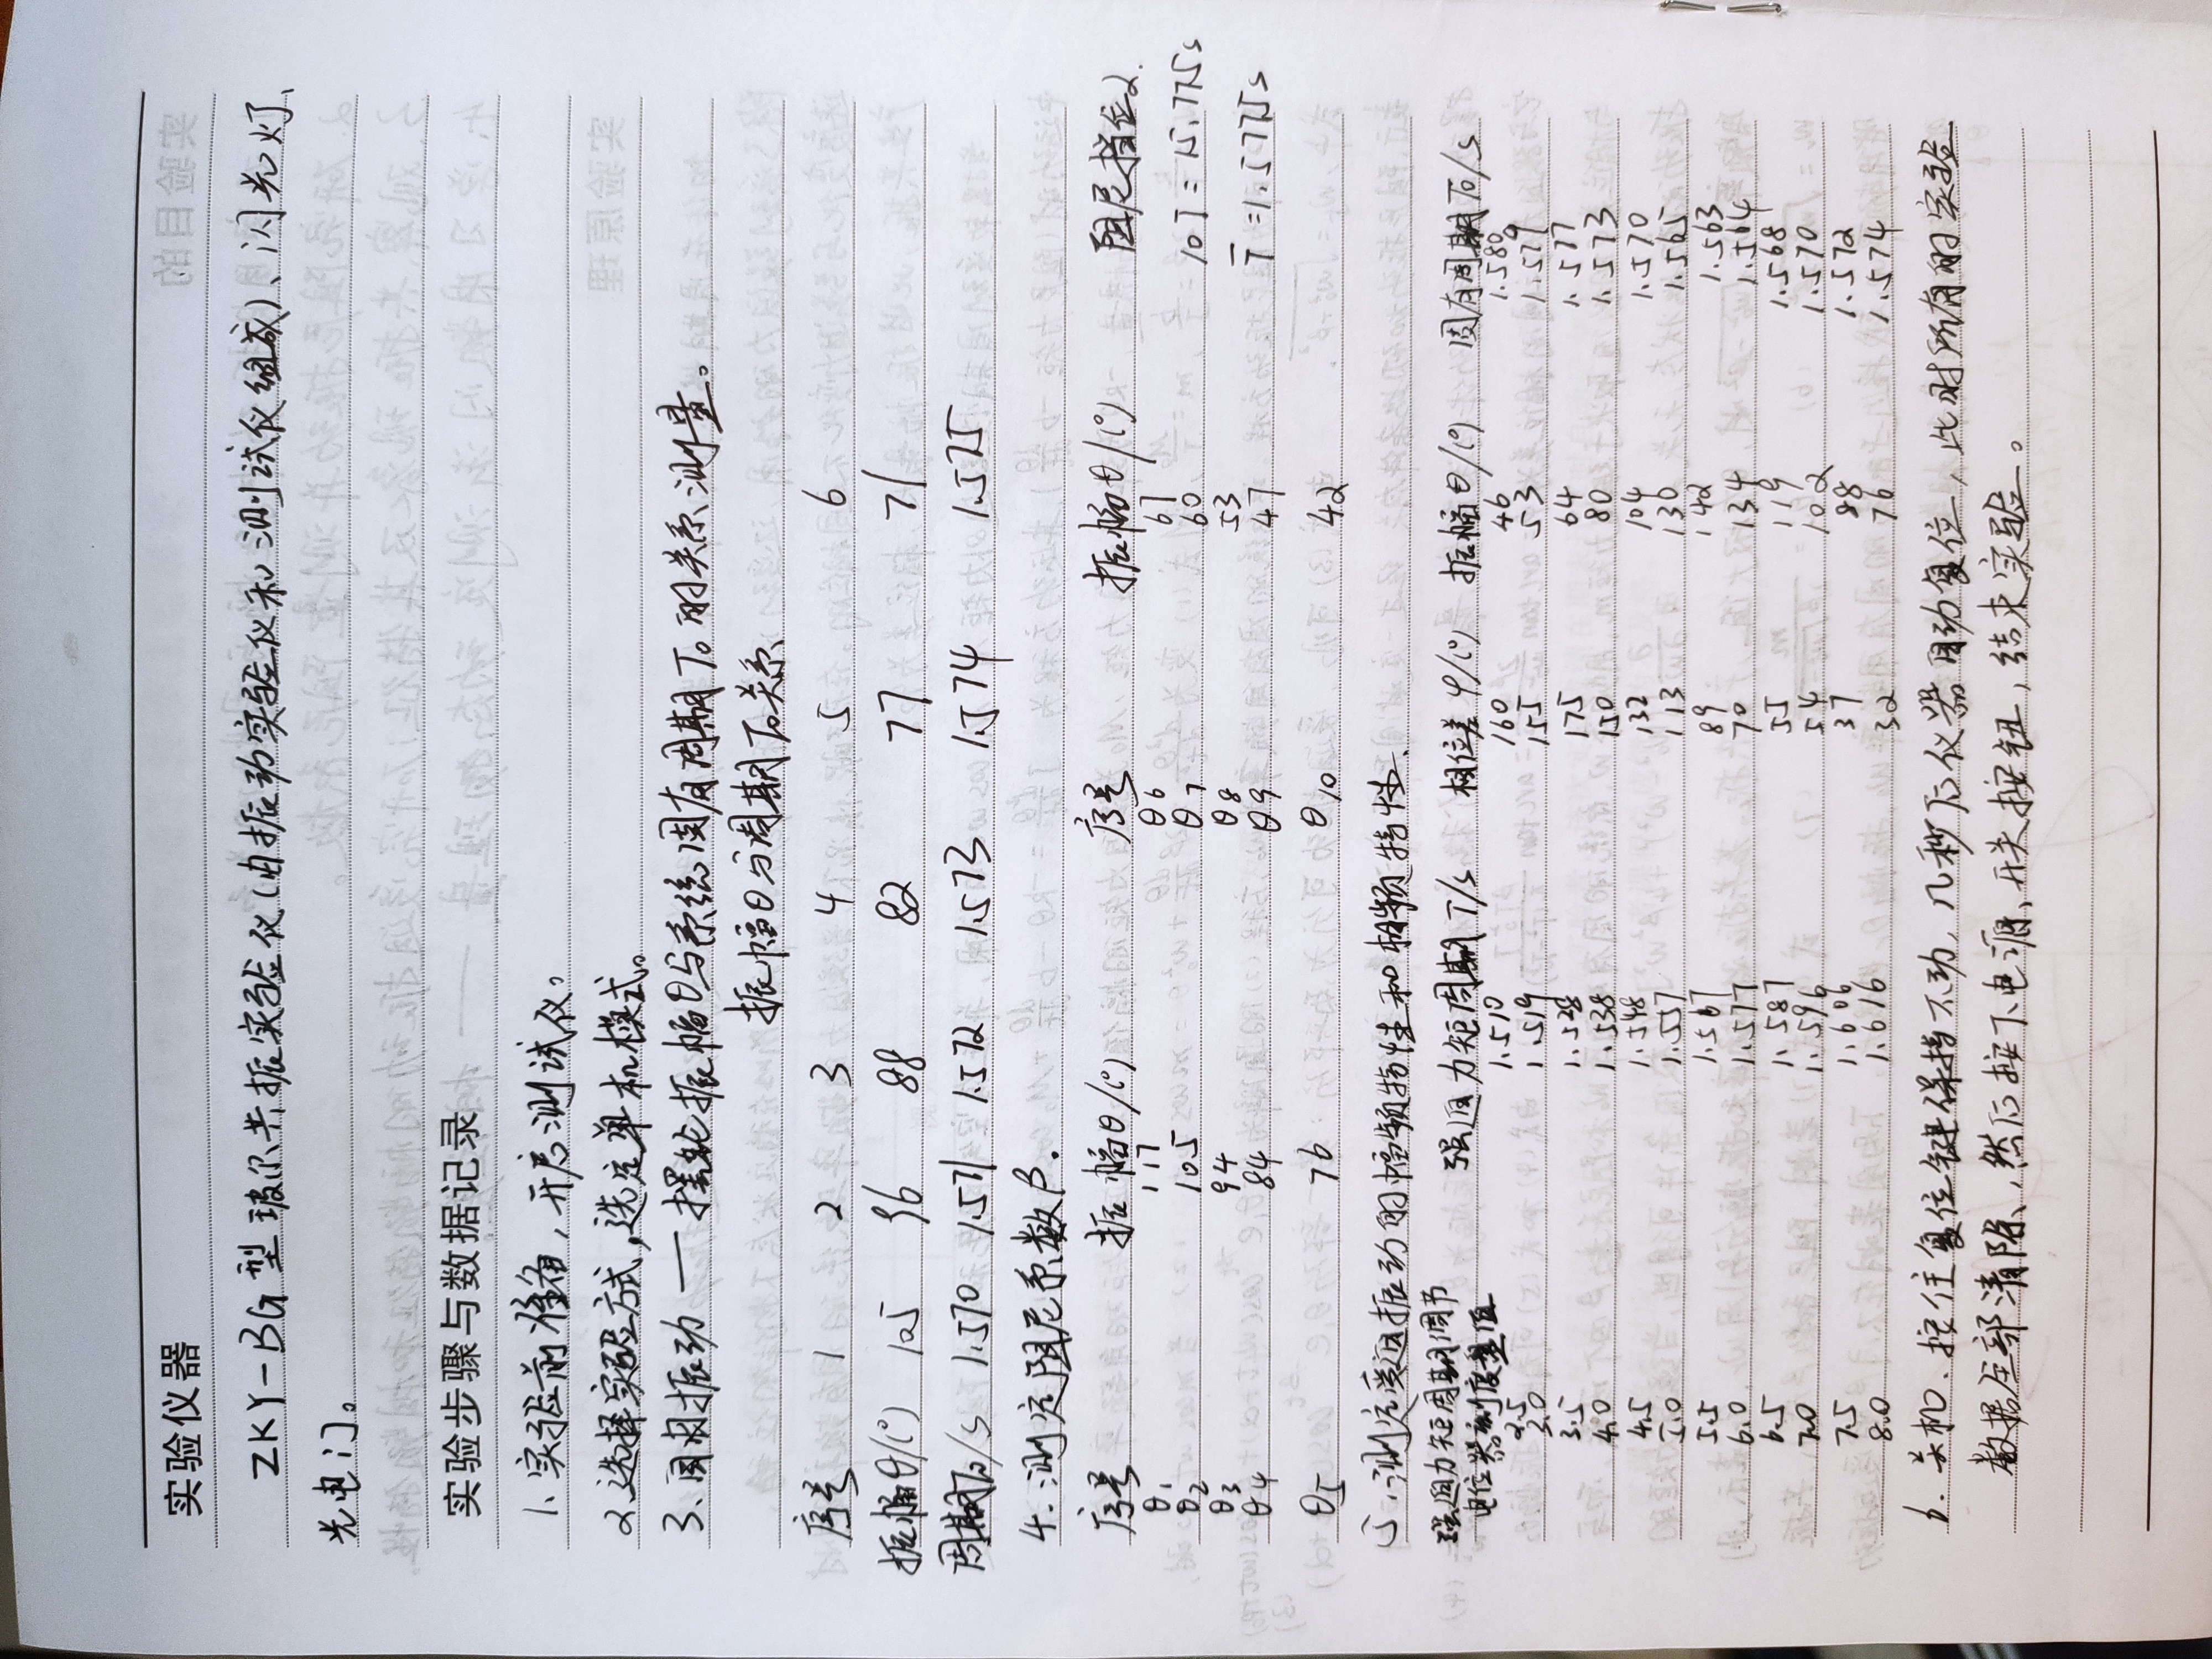 实验仪器
ZKY-BG型玻尔共振实验仪(由振动实验仪和测试仪组成)、闪光灯、
光电门。
实验步骤与数据记录
1.实验前准备,开启测试仪。
2.选择实验方式,选定单机模式。
3.自由振动——摆轮振幅θ与系统固有周期T₀的关系测量。
振幅θ与周期T₀关系
序号 1 2 3 4 5 6
振幅θ/(°) 105 96 88 82 77 71
周期T₀/s 1.570 1.571 1.572 1.573 1.574 1.575
4.测定阻尼系数β.
序号 振幅θ/(°) 序号 振幅θ/(°) 阻尼挡位2.
θ1 117 θ6 67 10T=15.775s
θ2 105 θ7 60
θ3 94 θ8 53 T̄=1.5775s
θ4 84 θ9 47
θ5 76 θ10 42
5.测定受迫振动的幅频特性和相频特性.
强迫力矩周期调节电位器刻度盘值 强迫力矩周期T/s 相位差φ/(°) 振幅θ/(°) 固有周期T₀/s
2.5 1.510 160 46 1.580
3.0 1.519 155 53 1.579
3.5 1.528 175 64 1.577
4.0 1.538 150 80 1.573
4.5 1.548 132 104 1.570
5.0 1.557 113 130 1.565
5.5 1.567 89 142 1.563
6.0 1.577 70 134 1.564
6.5 1.587 55 119 1.568
7.0 1.596 54 102 1.570
7.5 1.606 37 88 1.572
8.0 1.616 32 76 1.574
6.关机、按住复位键保持不动,几秒后仪器自动复位,此时所有的实验
数据全部清除,然后按下电源开关按钮,结束实验。